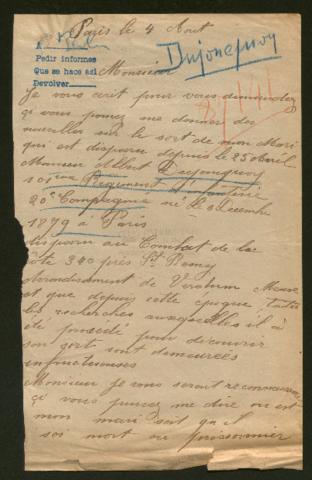 Paris le 4 Aout
A
Pedir informes
Que se hace asi
Devolver
Dujonquoy
Monsieur
Je vous écrit pour vous demander
si vous pouvez me donner des
nouvelles sur le sort de mon Mari
qui est disparu depuis le 25 avril
Monsieur Albert Dujonquoy
101me Régiment d'infanterie
20e Compagnie né le Décembre
1879 à Paris
disparu au Combat de la
côte 340 près St Remy
Arrondissement de Verdun Meuse
et que depuis cette époque, toutes
les recherches auxquelles il à
été procédé pour découvrir
son sort sont demeurées
infructueuses
Monsieur Je vous serait reconnaissante
si vous pouvez me dire ou est
mon mari soit qu'il
soi mort ou prisonnier